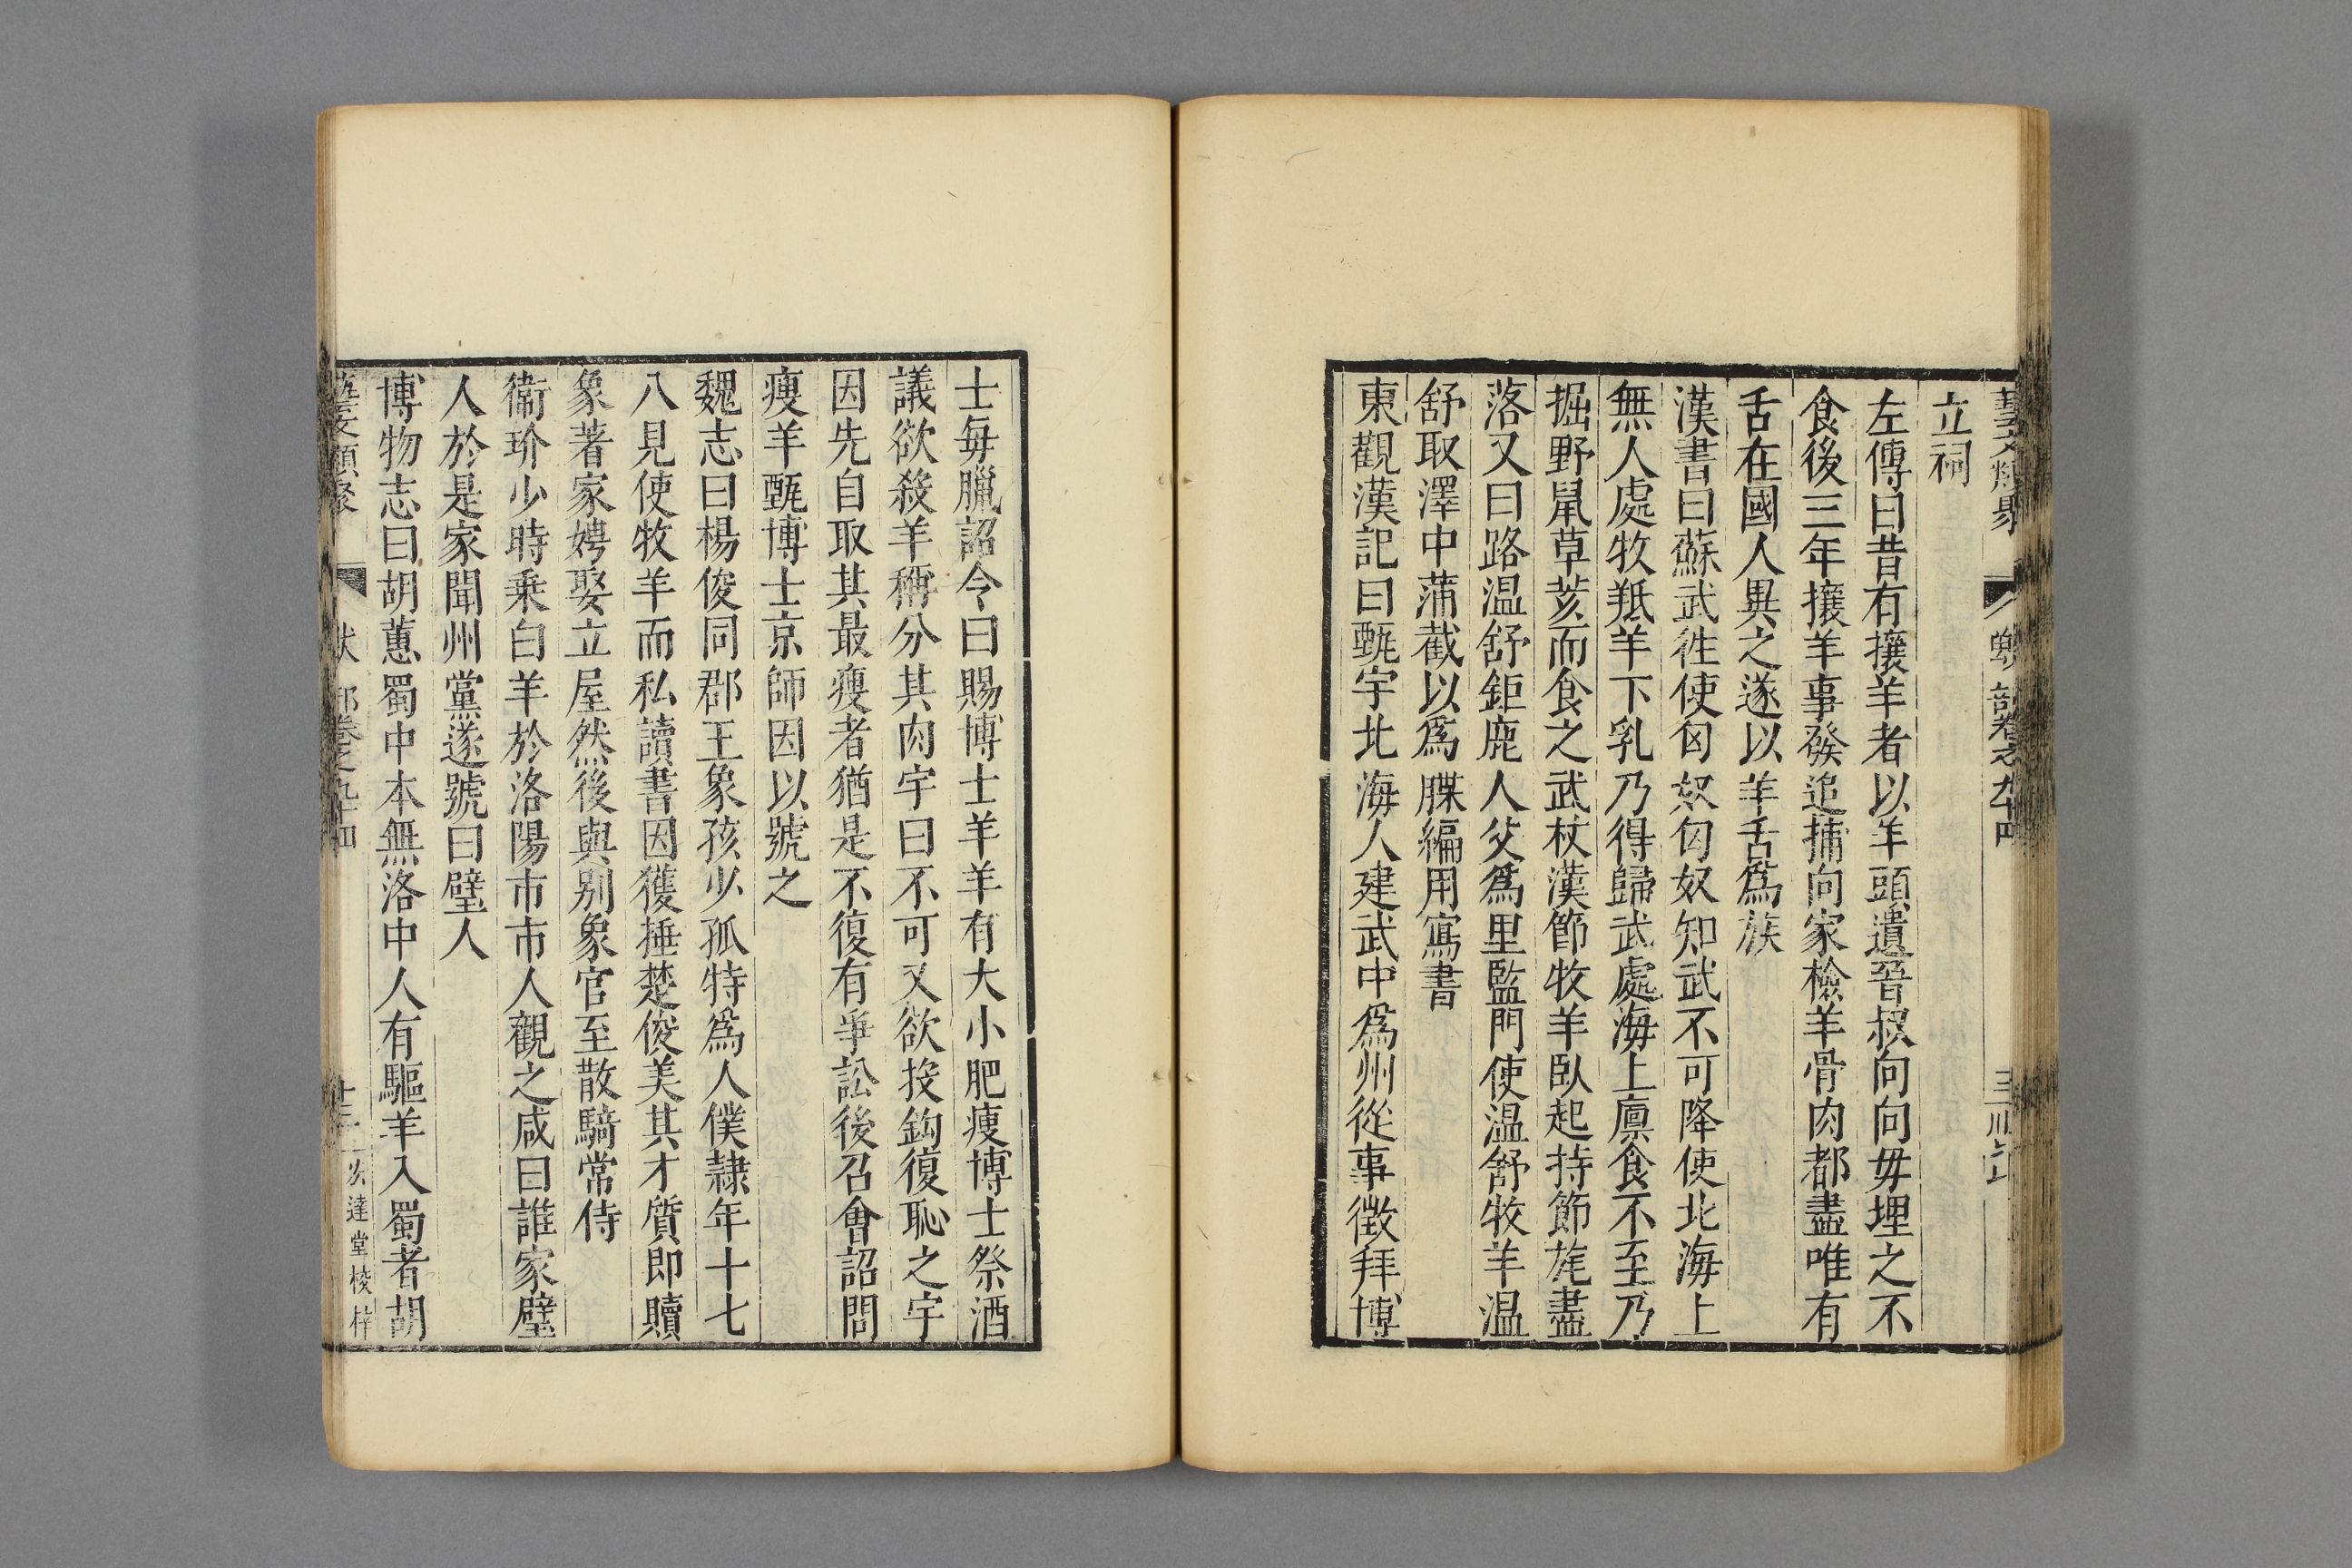 立祠
左傳曰昔有攘羊者以羊頭遺晉叔向向毋埋之不
食後三年攘羊事發追捕向家檢羊骨肉都盡唯有
舌在國人異之遂以羊舌爲族
漢書曰蘇武徃使匈奴匈奴知武不可降使北海上
無人處牧羝羊下乳乃得歸武處海上廪食不至乃
掘野鼠草荄而食之武杖漢節牧羊臥起持節旄盡
落又曰路温舒鉅鹿人父爲里監門使温舒牧羊温
舒取澤中蒲截以爲牒編用寫書
東觀漢記曰甄宇北海人建武中爲州從事徴拜博
士每臘詔令曰賜博士羊羊有大小肥瘦博士祭酒
議欲殺羊稱分其肉宇曰不可又欲投鈎復恥之宇
因先自取其最瘦者猶是不復有爭訟後召會詔問
瘦羊甄博士京師因以號之
魏志曰楊俊同郡王象孩少孤特爲人僕隷年十七
八見使牧羊而私讀書因獲捶楚俊美其才質即贖
象著家娉娶立屋然後與别象官至散騎常侍
衞玠少時乗白羊於洛陽市市人觀之咸曰誰家璧
人於是家聞州黨遂號曰璧人
博物志曰胡蕙蜀中本無洛中人有驅羊入蜀者胡
藝文類聚 部卷之九十四 十三